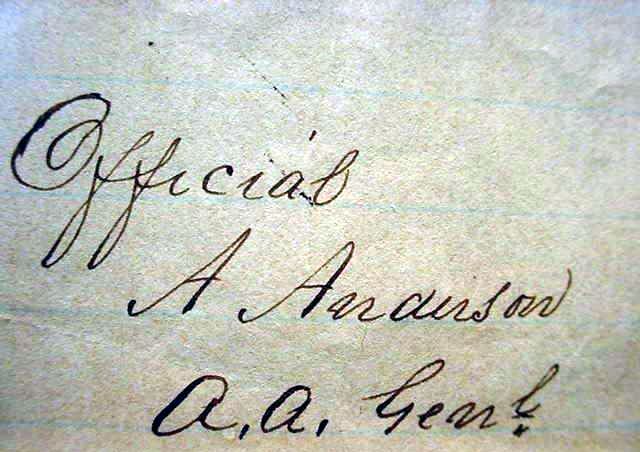 Official
A Anderson
A. A. Genl